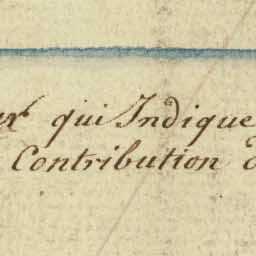 qui Indique
Contribution